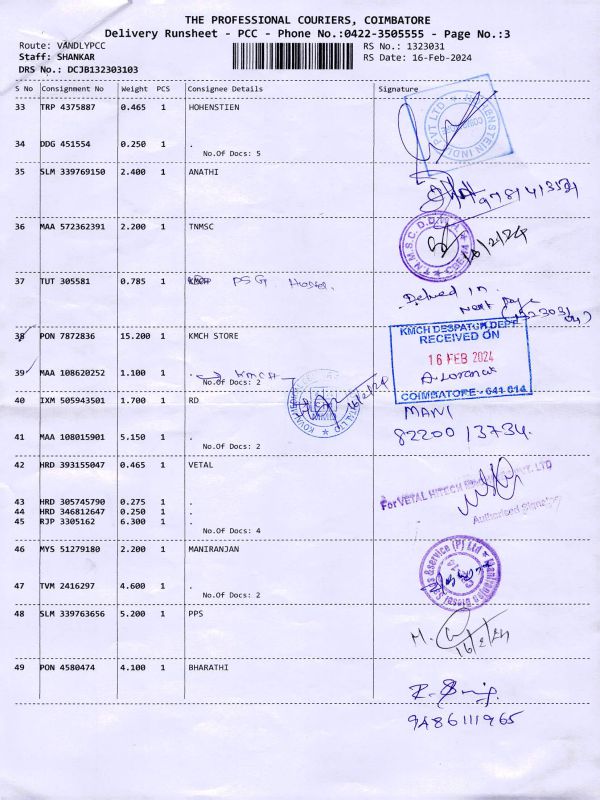 THE PROFESSIONAL COURIERS, COIMBATORE
Delivery Runsheet - PCC - Phone No.:0422-3505555 - Page No.:3
Route: VANDLYPCC RS No.: 1323031
Staff: SHANKAR RS Date: 16-Feb-2024
DRS No.: DCJB132303103
S No Consignment No Weight PCS Consignee Details Signature
33 TRP 4375887 0.465 1 HOHENSTIEN
34 DDG 451554 0.250 1 .
No.Of Docs: 5
35 SLM 339769150 2.400 1 ANATHI
9781413521
36 MAA 572362391 2.200 1 TNMSC
T.N.M.S.C. D.D.W.
16/2/24
37 TUT 305581 0.785 1 PSG
Next page
38 PON 7872836 15.200 1 KMCH STORE
KMCH DESPATCH DEPT.
RECEIVED ON
16 FEB 2024
COIMBATORE - 641 014
39 MAA 108620252 1.100 1 . KMCH
No.Of Docs: 2
40 IXM 505943501 1.700 1 RD 16/2/24
MANI
82200 13734.
41 MAA 108015901 5.150 1 .
No.Of Docs: 2
42 HRD 393155047 0.465 1 VETAL
For VETAL HITECH PVT. LTD
Authorised Signatory
43 HRD 305745790 0.275 1 .
44 HRD 346812647 0.250 1 .
45 RJP 3305162 6.300 1 .
No.Of Docs: 4
46 MYS 51279180 2.200 1 MANIRANJAN
47 TVM 2416297 4.600 1 .
No.Of Docs: 2
48 SLM 339763656 5.200 1 PPS
16/2/24
49 PON 4580474 4.100 1 BHARATHI
9486111965